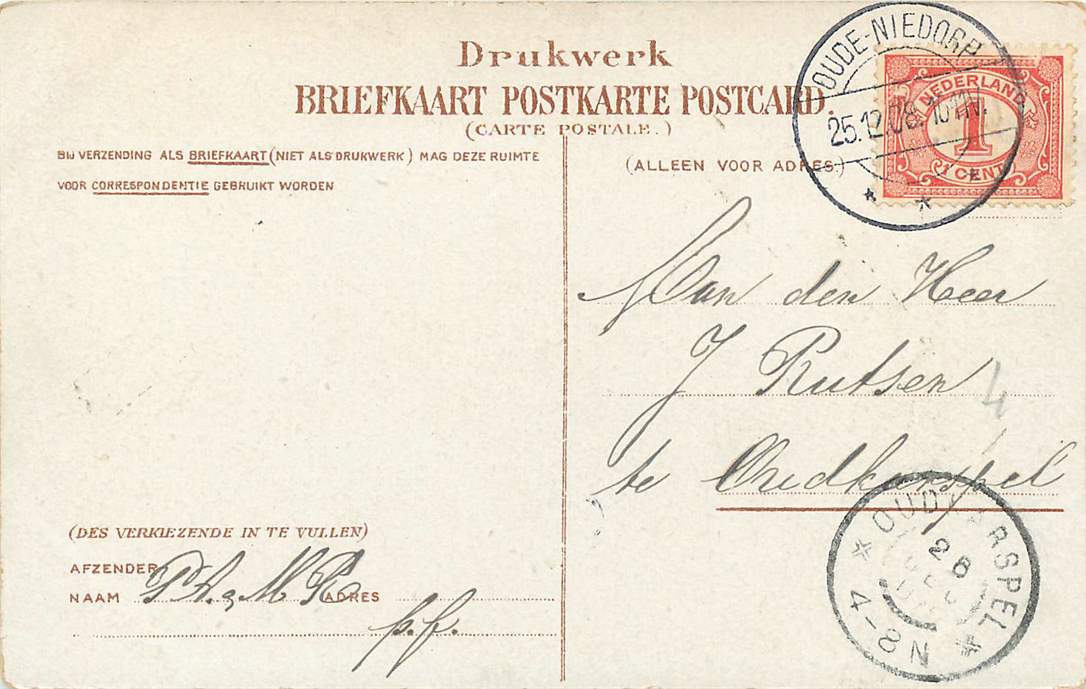 Drukwerk
BRIEFKAART POSTKARTE POSTCARD.
(CARTE POSTALE.)
BIJ VERZENDING ALS BRIEFKAART (NIET ALS DRUKWERK) MAG DEZE RUIMTE
VOOR CORRESPONDENTIE GEBRUIKT WORDEN
(ALLEEN VOOR ADRES.)
OUDE-NIEDORP
25.12.08. 10-11V.
NEDERLAND
1
1 CENT
Aan den Heer
J Rutsen
4
te Oudkarspel
OUDKARSPEL
26
4-8N
(DES VERKIEZENDE IN TE VULLEN)
AFZENDER
NAAM
ADRES
p.f.